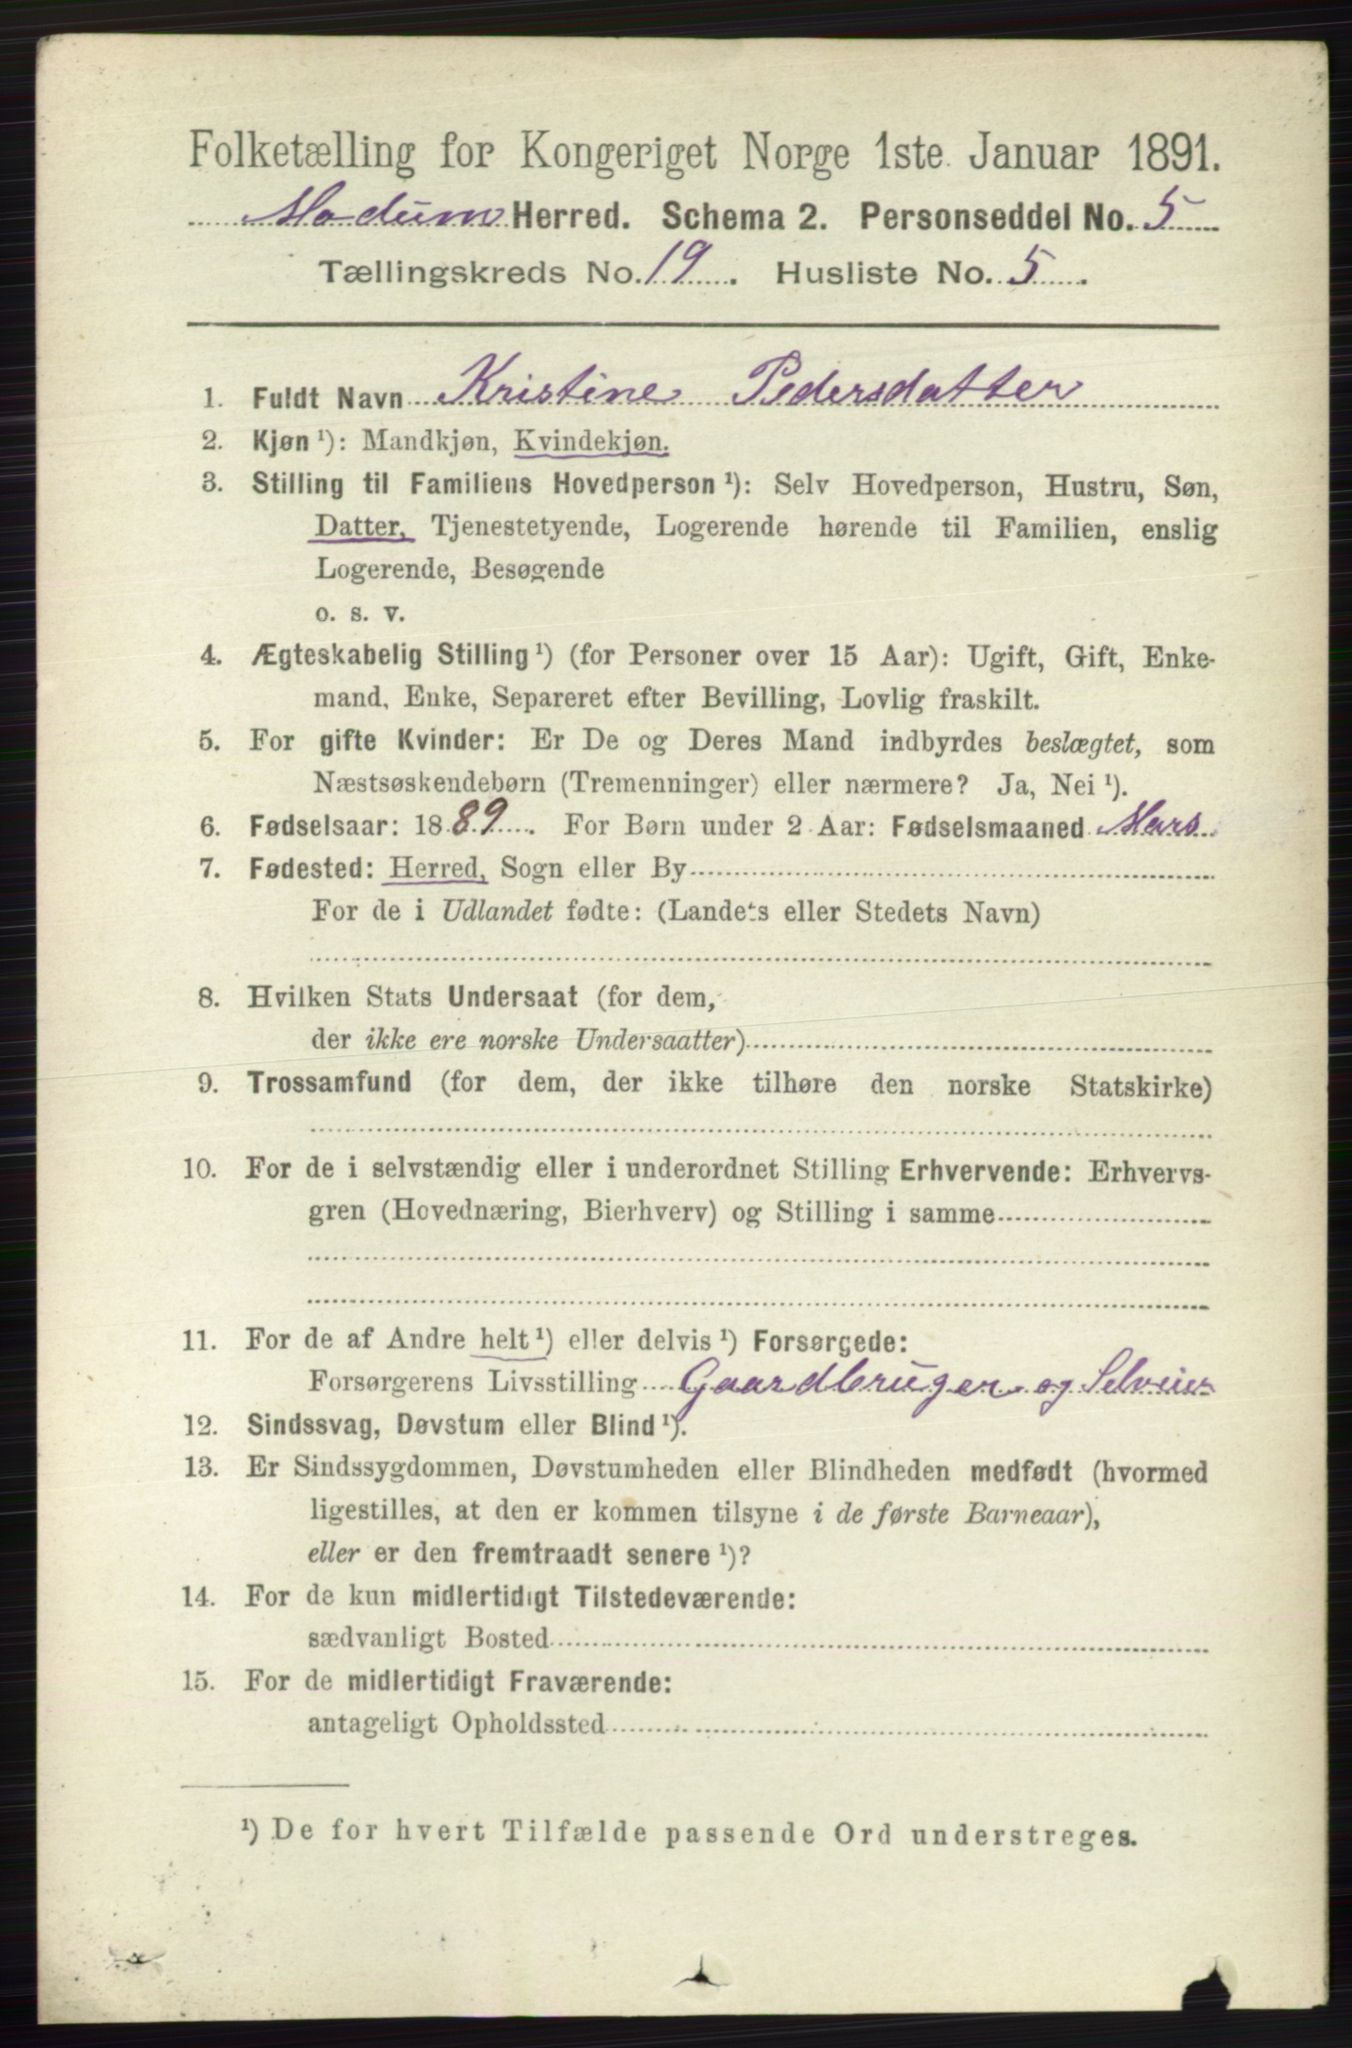 Folketælling for Kongeriget Norge 1ste Januar 1891.
Modum Herred. Schema 2. Personseddel No. 5
Tællingskreds No. 19. Husliste No. 5.
1. Fuldt Navn Kristine Pedersdatter
2. Kjøn ¹): Mandkjøn, Kvindekjøn.
3. Stilling til Familiens Hovedperson ¹): Selv Hovedperson, Hustru, Søn,
Datter, Tjenestetyende, Logerende hørende til Familien, enslig
Logerende, Besøgende
o. s. v.
4. Ægteskabelig Stilling ¹) (for Personer over 15 Aar): Ugift, Gift, Enke-
mand, Enke, Separeret efter Bevilling, Lovlig fraskilt.
5. For gifte Kvinder: Er De og Deres Mand indbyrdes beslægtet, som
Næstsøskendebørn (Tremenninger) eller nærmere? Ja, Nei ¹).
6. Fødselsaar: 1889. For Børn under 2 Aar: Fødselsmaaned Mars
7. Fødested: Herred, Sogn eller By
For de i Udlandet fødte: (Landets eller Stedets Navn)
8. Hvilken Stats Undersaat (for dem,
der ikke ere norske Undersaatter)
9. Trossamfund (for dem, der ikke tilhøre den norske Statskirke)
10. For de i selvstændig eller i underordnet Stilling Erhvervende: Erhvervs-
gren (Hovednæring, Bierhverv) og Stilling i samme
11. For de af Andre helt ¹) eller delvis ¹) Forsørgede:
Forsørgerens Livsstilling Gaardbruger og Selveier
12. Sindssvag, Døvstum eller Blind ¹).
13. Er Sindssygdommen, Døvstumheden eller Blindheden medfødt (hvormed
ligestilles, at den er kommen tilsyne i de første Barneaar),
eller er den fremtraadt senere ¹)?
14. For de kun midlertidigt Tilstedeværende:
sædvanligt Bosted
15. For de midlertidigt Fraværende:
antageligt Opholdssted
¹) De for hvert Tilfælde passende Ord understreges.